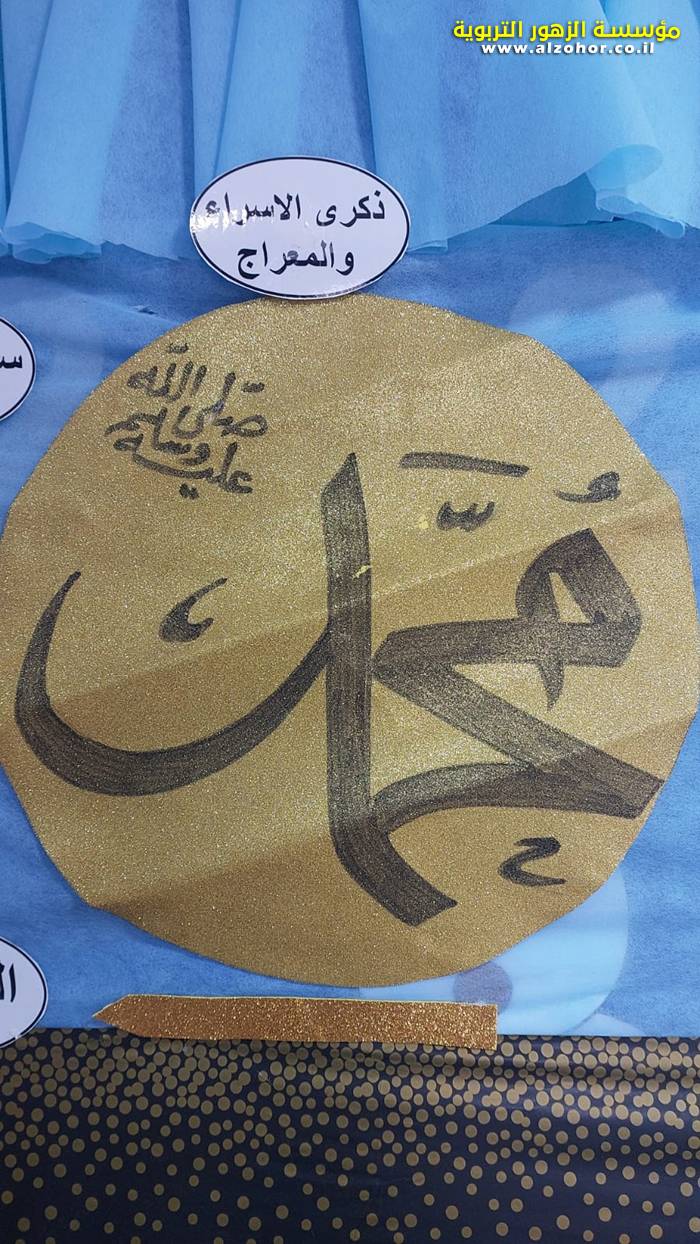 مؤسسة الزهور التربوية
www.alzohor.co.il
ذكرى الاسراء
والمعراج
صلى الله
عليه وسلم
محمد